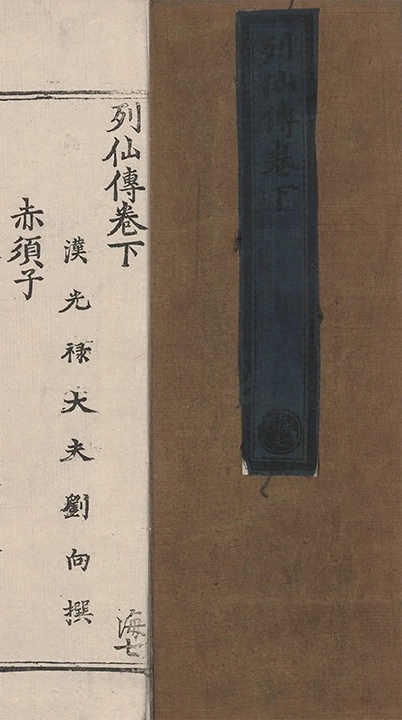 列仙傳卷下
列仙傳卷下
漢光禄大夫劉向撰
海七
赤須子